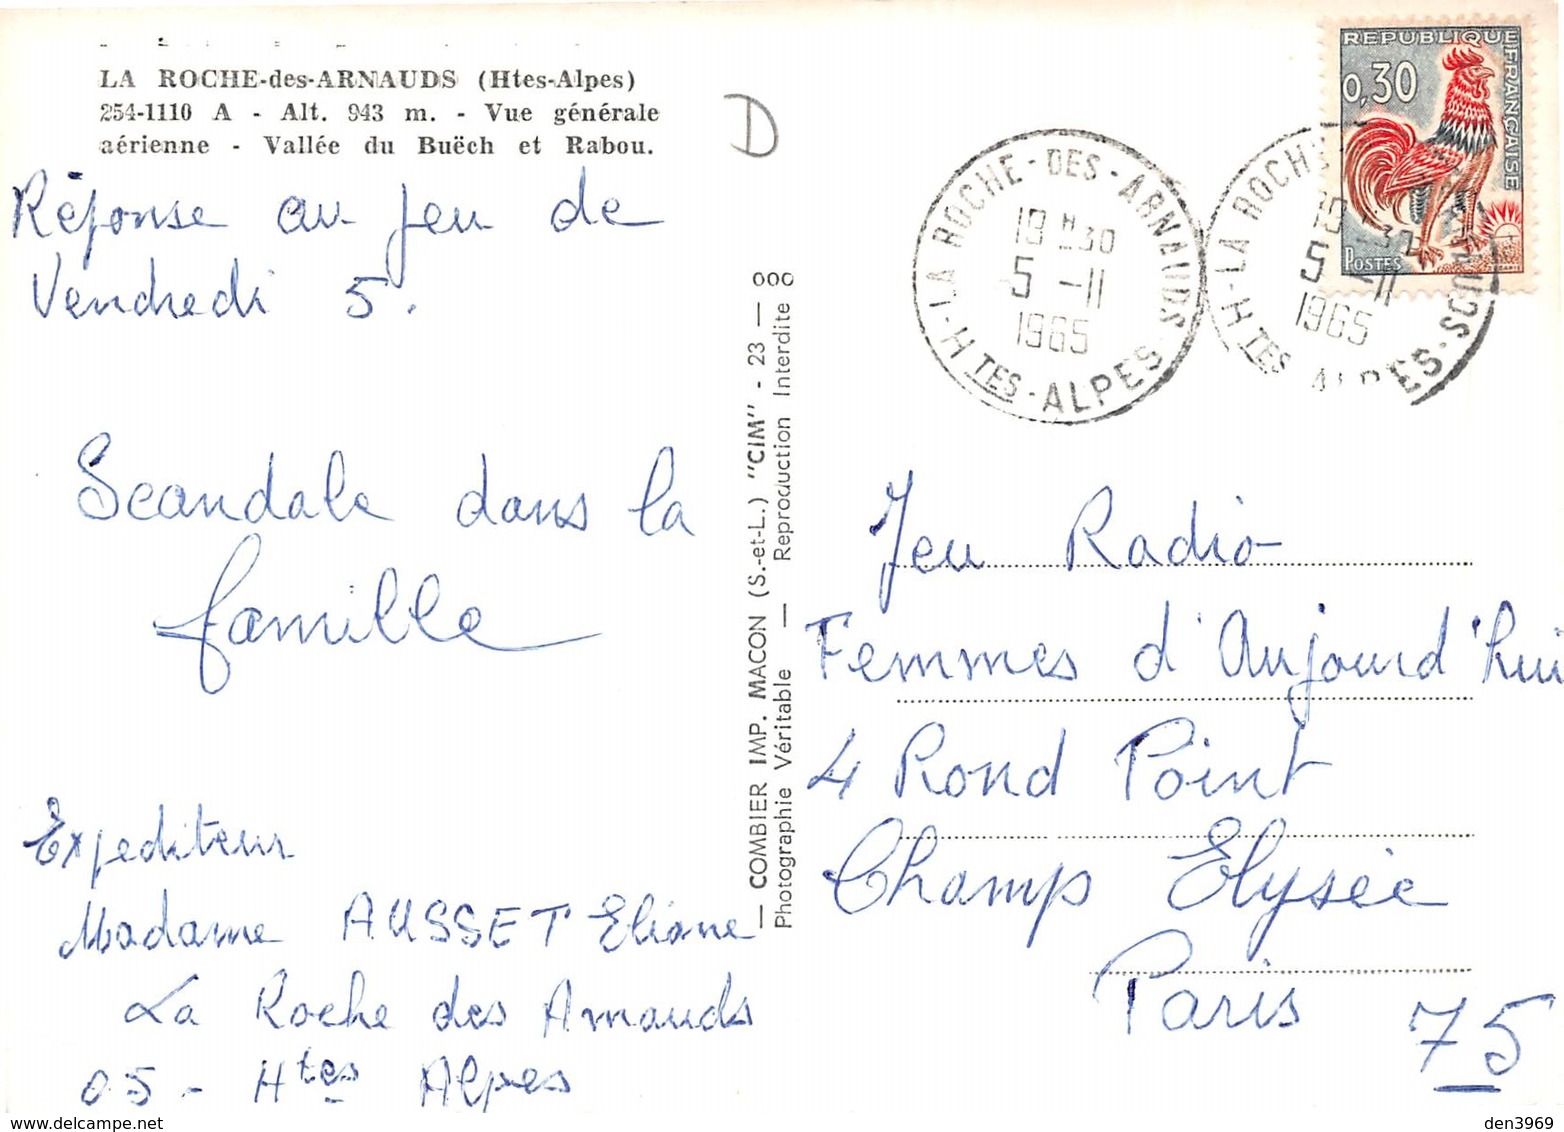 LA ROCHE-des-ARNAUDS (Htes-Alpes)
254-1110 A - Alt. 943 m. - Vue générale
aérienne - Vallée du Buëch et Rabou.
D
Réponse au jeu de
Vendredi 5.
Scandale dans la
famille
Expediteur
Madame AUSSET Eliane
La Roche des Arnauds
05 - Htes Alpes
— COMBIER IMP. MACON (S.-et-L.) "CIM" - 23 — 000
Photographie Véritable — Reproduction Interdite
REPUBLIQUE
FRANÇAISE
0,30
POSTES
LA ROCHE-DES-ARNAUDS
19 H 30
5 -11
1965
HTES-ALPES
LA ROCHE
19 H 30
5 -11
1965
HTES ALPES
Jeu Radio
Femmes d'Aujourd'hui
4 Rond Point
Champ Elysée
Paris
75
den3969